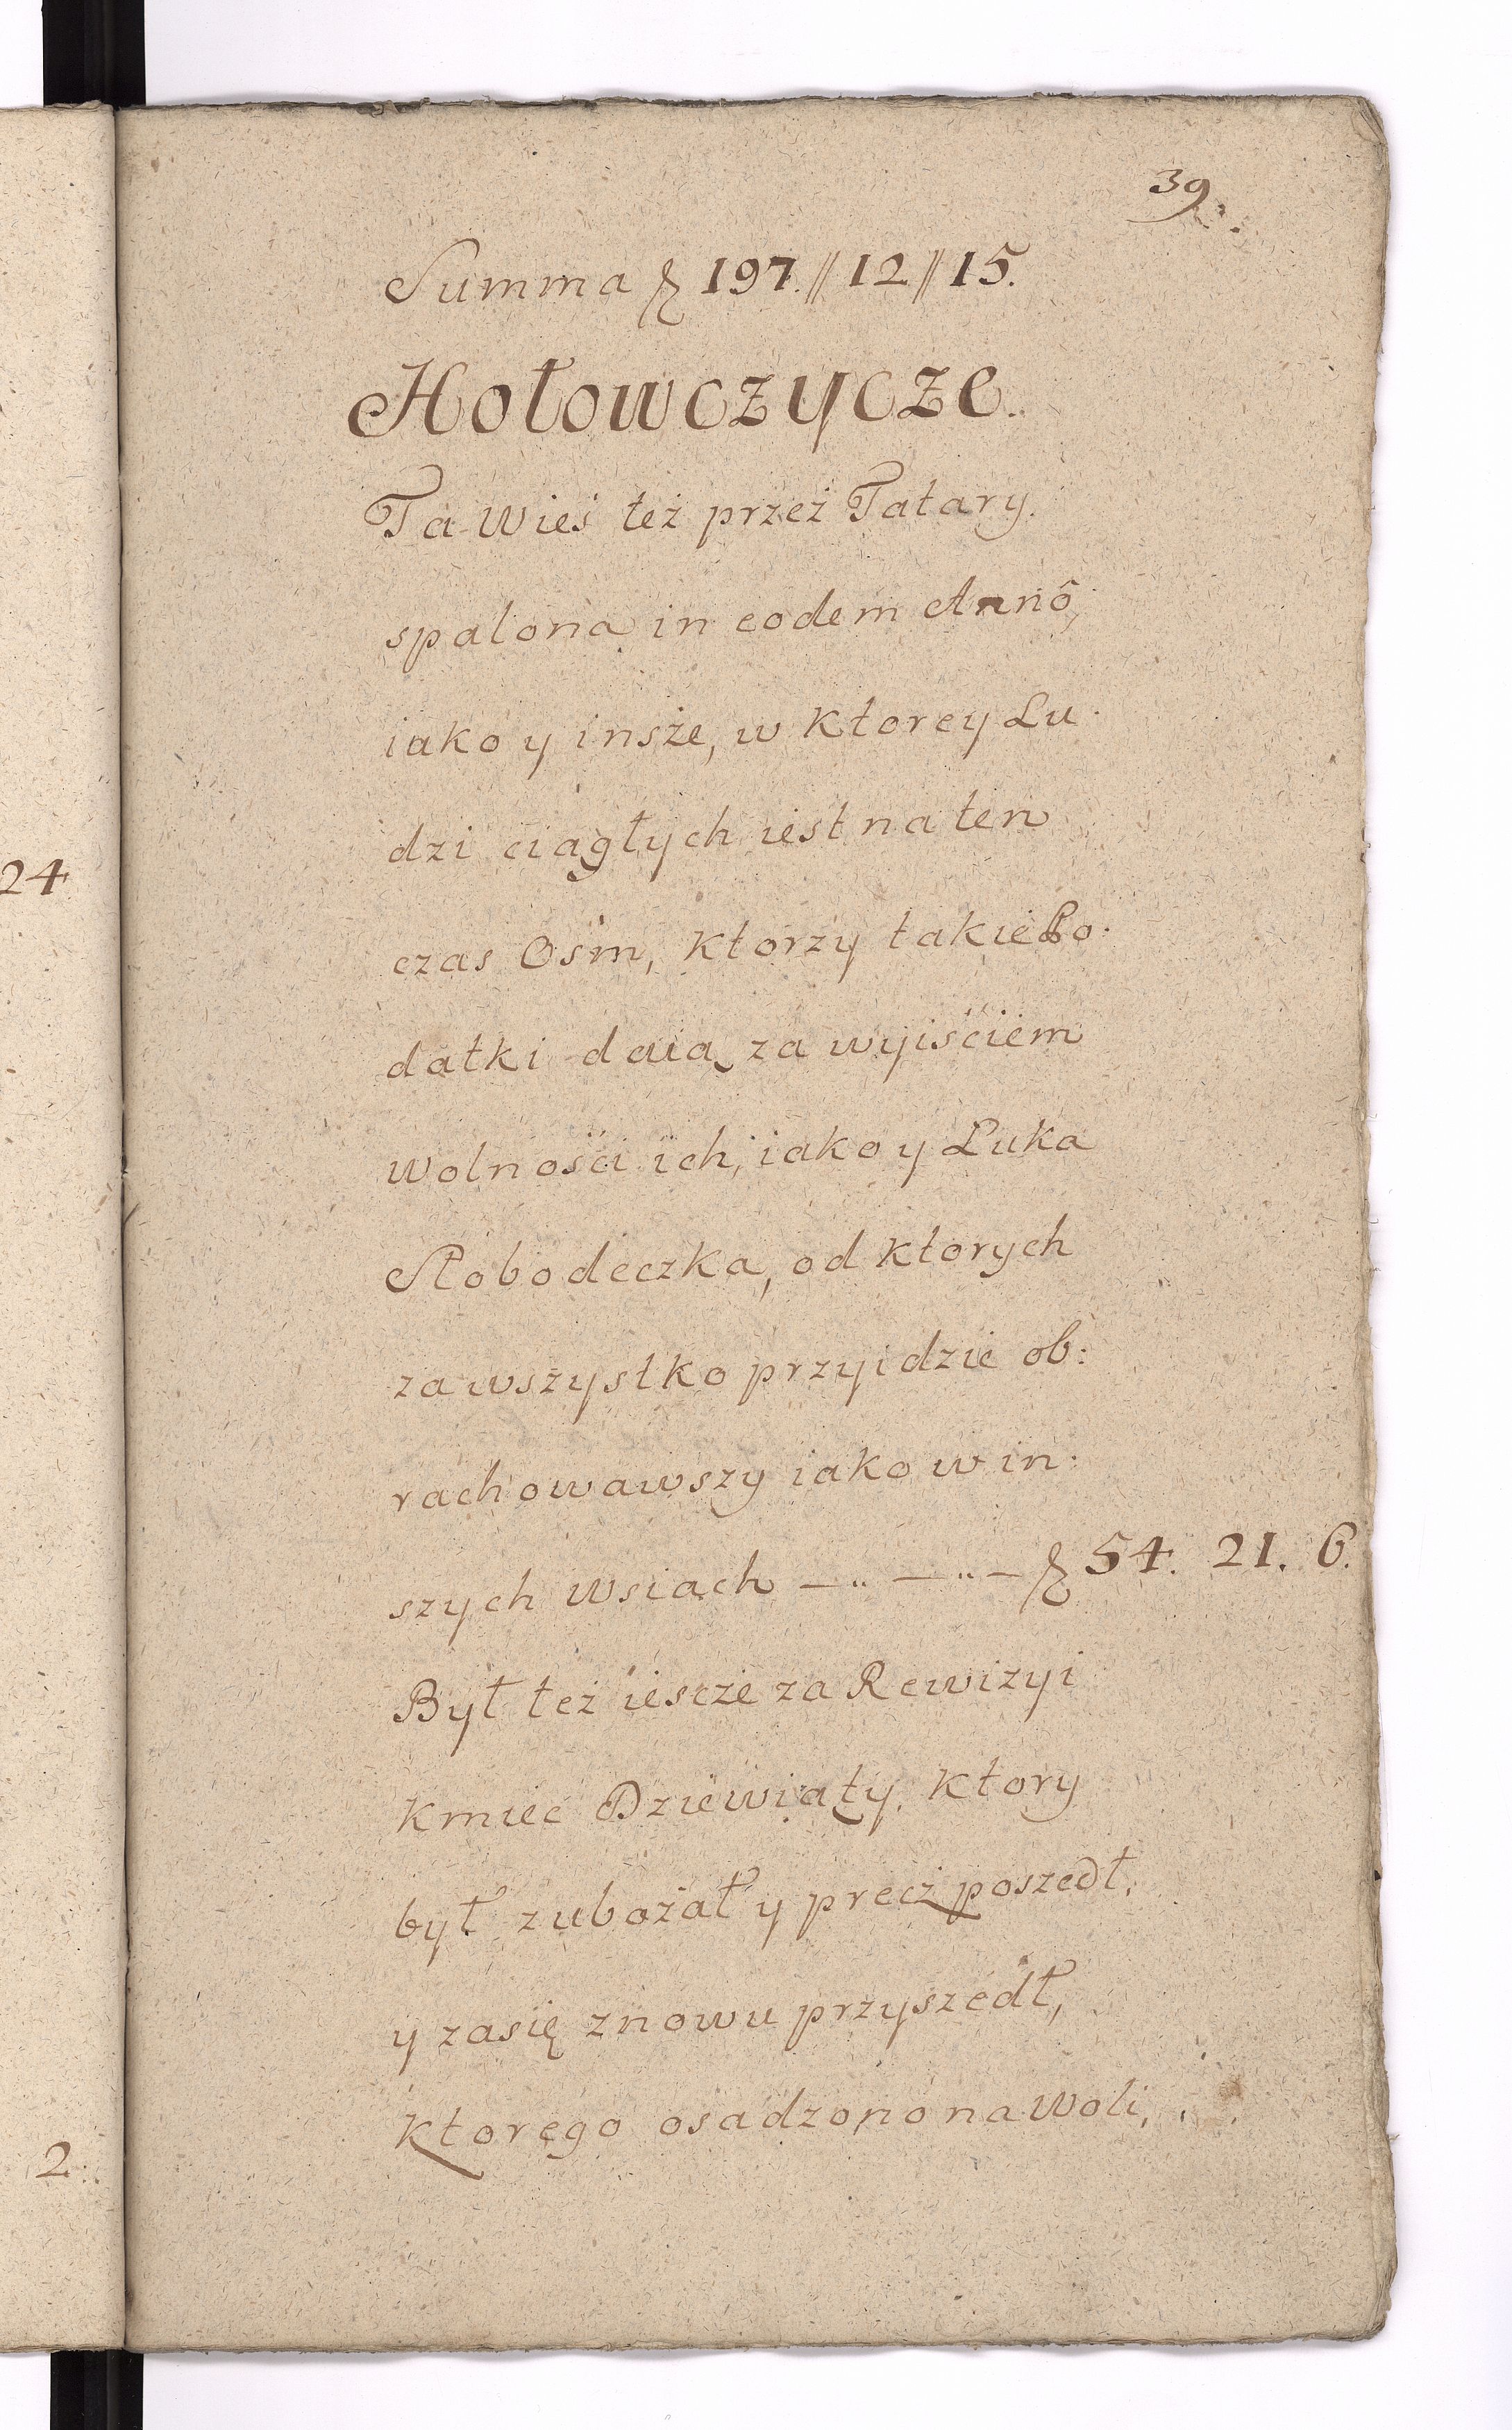 39.
Summa ƶ 197.//12//15.
Hołowczycze.
Ta Wieś też przez Tatary.
spalona in eodem Annô,
iako y insze, w ktorey Lu.
dzi ciągłych iest na ten
czas Osm, ktorzy takie Po.
datki daią za wyiściem
wolności ich, iako y Łuka
Słobodeczka, od ktorych
za wszystko przyidzie ob:
rachowawszy iako w in:
szych wsiach —"—"— ƶ 54. 21. 6.
Był też iescze za Rewizyi
kmieć Dziewiąty, ktory
był zubożał y precz poszedł,
y zasię znowu przyszedł,
ktorego osadzono na woli,
24
2